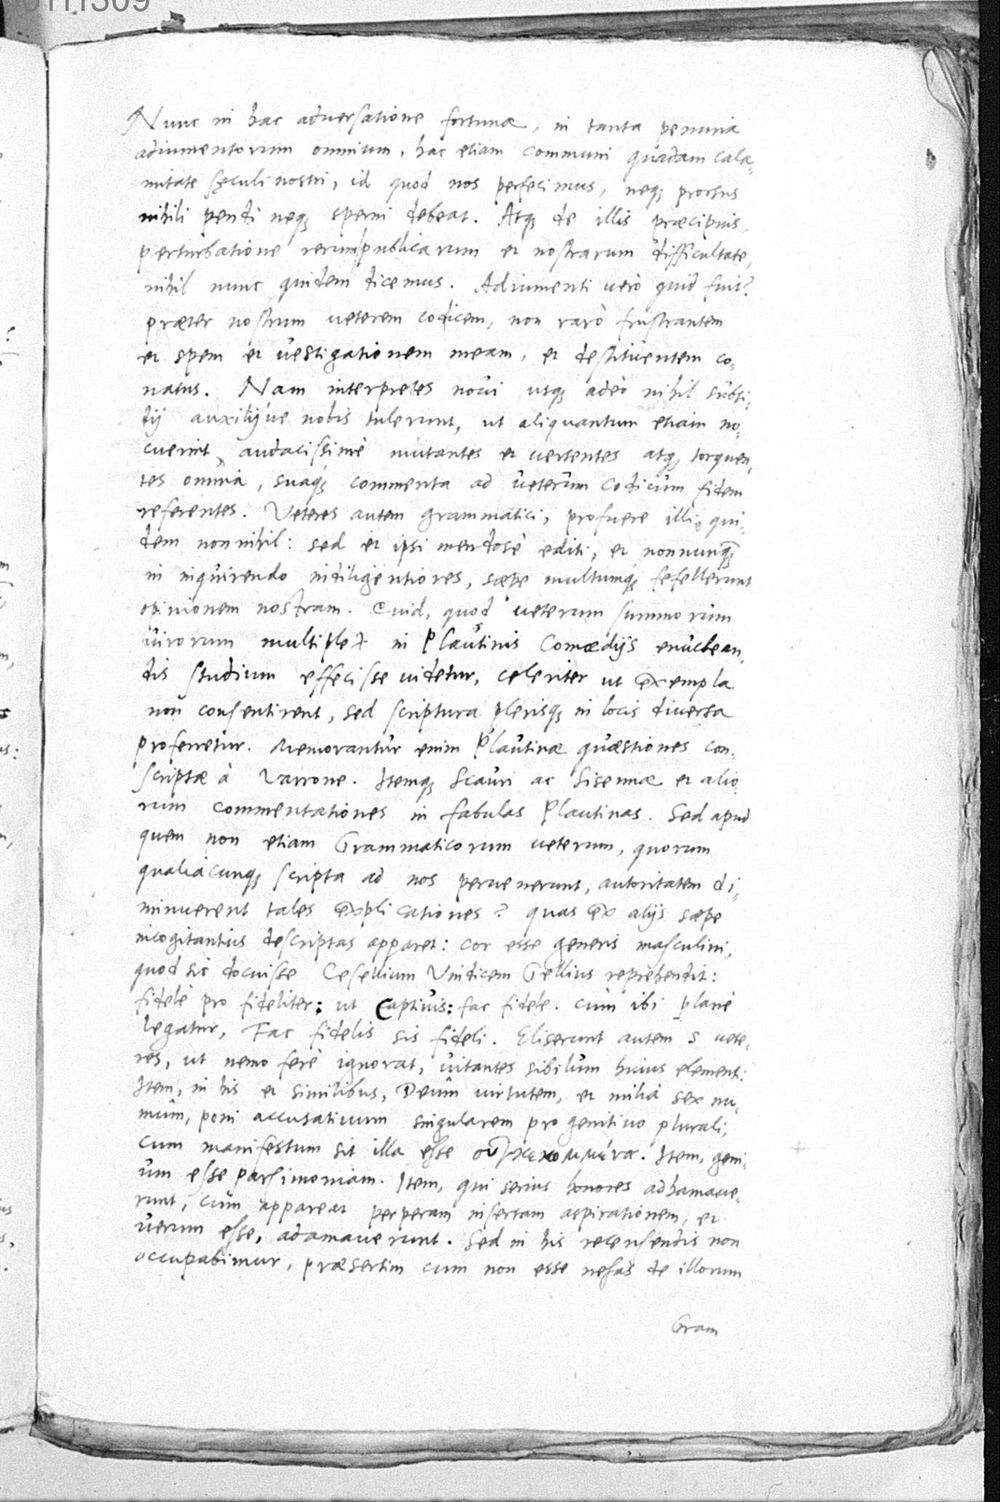 Nunc in hac adversatione fortunæ, in tanta penuria
adiumentorum omnium, hac etiam communi quadam cala-
mitate seculi nostri, id quod nos perfecimus, neq3 prorsus
nihili pendi neq3 sperni debeat. Atq3 de illis præcipuis,
perturbatione rerumpublicarum et nostrarum difficultate,
nihil nunc quidem dicemus. Adiumenti verò quid fuit?
præter nostrum veterem codicem, non rarò frustrantem
et spem et vestigationem meam, et destituentem co-
natus. Nam interpretes novi usq3 adeò nihil subsi-
dij auxilijve nobis tulerunt, ut aliquantum etiam no-
cuerint, audacissimè mutantes et vertentes atq3 torquen-
tes omnia, suaq3 commenta ad veterum codicum fidem
referentes. Veteres autem grammatici, profuere illi qui-
dem nonnihil: sed et ipsi mendosè editi, et nonnunq̃
in inquirendo indiligentiores, sæpe multumq3 fefellerunt
opinionem nostram. Quid, quod veterum summorum
virorum multiplex in Plautinis Comœdijs enuclean-
dis studium effecisse videtur, celeriter ut exempla
non consentirent, sed scriptura plerisq3 in locis diversa
proferretur. Memorantur enim Plautinæ quæstiones con-
scriptæ à Varrone. Itemq3 Scauri ac Sisennæ et alio
rum commentationes in fabulas Plautinas. Sed apud
quem non etiam Grammaticorum veterum, quorum
qualiacunq3 scripta ad nos pervenerunt, autoritatem di-
minuerent tales explicationes? quas ex alijs sæpe
incogitantius descriptas apparet: cor esse generis masculini,
quod sic docuisse Cesellium Vindicem Gellius reprehendit:
fidele pro fideliter: ut Captivis: fac fidele. cùm ibi planè
legatur, Fac fidelis sis fideli. Eliserunt autem s vete-
res, ut nemo ferè ignorat, vitantes sibilum huius elementi:
Item, in his et similibus, Deûm virtutem, et milia sex nu-
mûm, poni accusativum singularem pro genitivo plurali,
cum manifestum sit illa esse Item, geni-
um esse parsimoniam. Item, qui serius honores adhamave-
runt, cùm appareat perperam insertam aspirationem, et
verum esse, adamaverunt. Sed in his recensendis non
occupabimur, præsertim cum non esse nefas de illorum
Gram